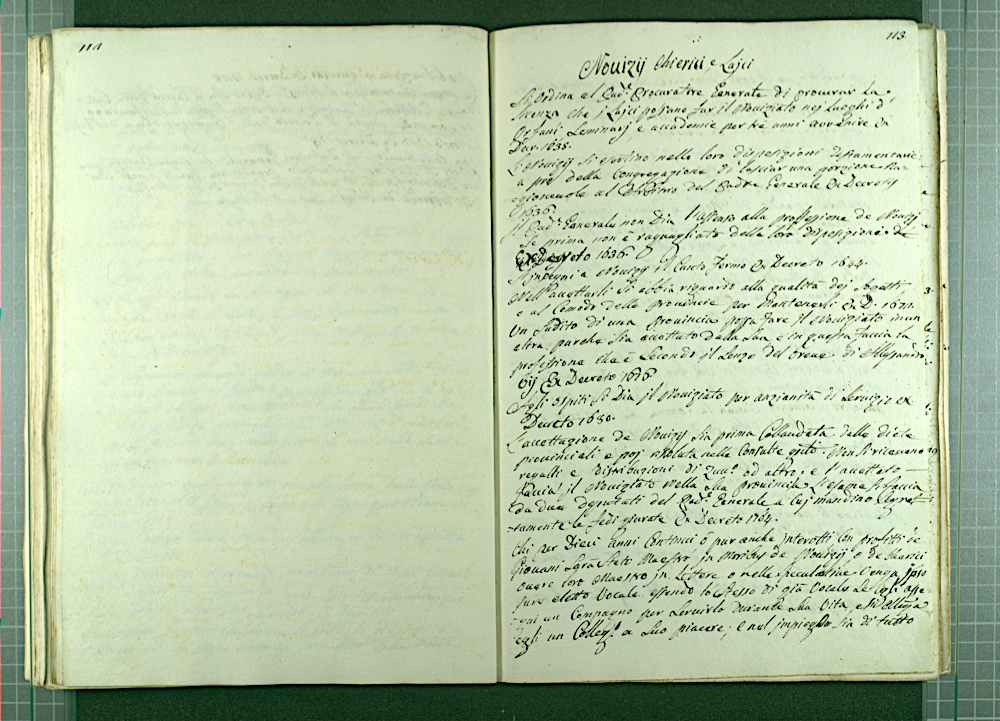 110
113
Nouizij Chierici, e Lajci
Si Ordina al Pad.e Procuratore Generale di procurar la
licenza che i Lajci possano far il Nouiziato nej luoghi d'
Orfani, Seminarj e accademie per tre anni avvenire
Dec. 1638.
Li Nouizij Si esortino nelle loro disposizioni Testamentarie
a pro della Congregazione di lasciar una porzione Ra-
gioneuole al del Padre Generale Ex Decretis
1636.
Il Pad.e Generale non Dia l'assenso alla professione de Nouizij
Se prima non è raguagliato della loro disposizione.
Ex Decreto 1636.
S'insegni a Nouizij il Canto fermo Ex Decreto 1644.
Nell'accettarli Si abbia riguardo alla qualità dej Sogetti,
e al Comodo della Prouincia per Mantenerli Ex D. 1671.
Un Sudito di una Prouincia possa fare il Nouiziato in un
altra, purche Sia accettato dalla Sua, e in questa faccia la
professione che è Secondo il Senso del breue di Alessandro
Vij Ex Decreto 1676
Agli ospiti Si Dia il Nouiziato per anzianità di Seruigio ex
Decreto 1680.
L'accettazione de Nouizij Sia prima Collaudata dalle diete
prouinciali e poj risoluta nelle Consulte Non Si riceuano
regalli e Distribuzioni di ad altro, e l'accettato
faccia il Nouiziato nella Sua Prouincia. L'esame Si faccia
da due deputati del Pad.e Generale a Cuj mandino Segret-
tamente le fedi giurate Ex Decreto 1784.
Chi per Dieci anni Continui o pur anche interotti Con profitto de
Giouani Sarà Stato Maestro in Moribus de Nouizij o de Chierici
ouero loro Maestro in Lettere o nelle Speculatiue Venga ipso
jure eletto Vocale essendo lo Stesso di già Vocale Se gli asse-
gni un Compagno per Seruirlo Durante Sua Vita, e Si elegga
egli un Colleg.o a Suo piacere, e nel impiego Sia di tutto